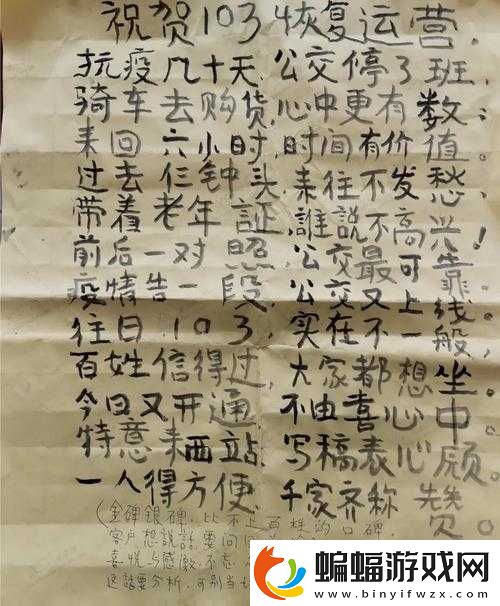 祝贺103恢复运营.
抗疫几十天,公交停了班。
骑车去购货,心中更有数。
来回六小时,时间有价值。
过去仨钟头,来往不发愁。
带着老年証,誰説不高兴!
前后一对照,公交最可靠。
疫情告一段,公交又上线。
往日103,实在不一般,
百姓信得过,大家都想坐。
今日又开通,不由喜心中。
特意来西站,写稿表心願。
一人得方便,千家齐称赞。
(金碑银碑,比不上百姓的口碑.
客户想説話,要回
喜悦与感激,不忘
这話要分析,可别当
蝙蝠游戏网
www.binyifwzx.com